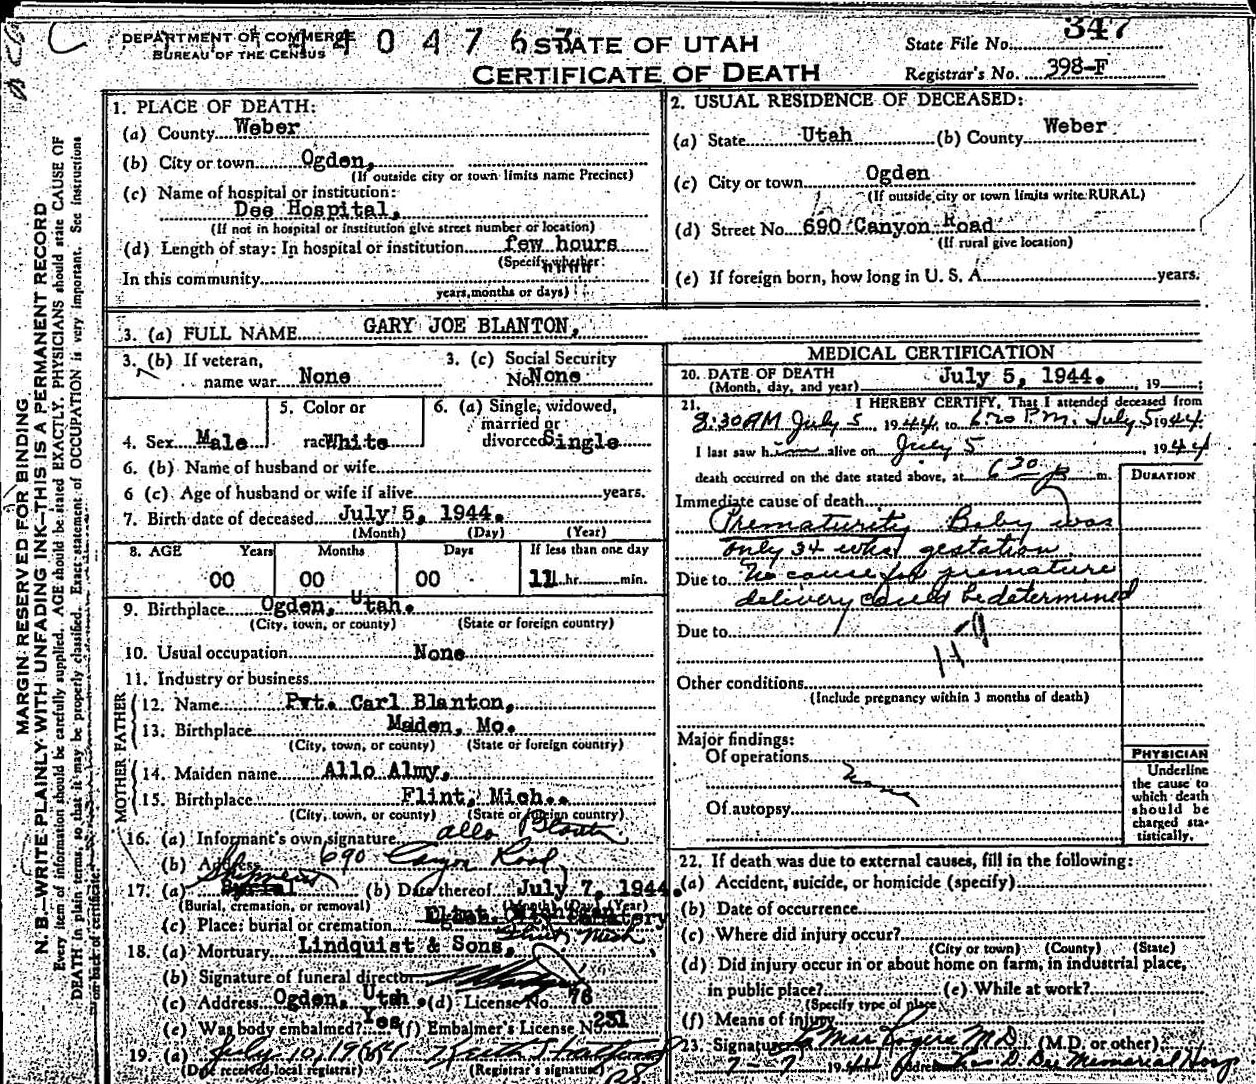 DEPARTMENT OF COMMERCE
BUREAU OF THE CENSUS
STATE OF UTAH
CERTIFICATE OF DEATH
State File No. 347
Registrar's No. 398-F
MARGIN RESERVED FOR BINDING
N. B.—WRITE PLAINLY WITH UNFADING INK—THIS IS A PERMANENT RECORD
Every item of information should be carefully supplied. AGE should be stated EXACTLY. PHYSICIANS should state CAUSE OF
DEATH in plain terms, so that it may be properly classified. Exact statement of OCCUPATION is very important. See instructions
on back of certificate.
1. PLACE OF DEATH:
(a) County Weber
(b) City or town Ogden,
(If outside city or town limits name Precinct)
(c) Name of hospital or institution:
Dee Hospital,
(If not in hospital or institution give street number or location)
(d) Length of stay: In hospital or institution few hours
(Specify whether:
In this community
years, months or days)
2. USUAL RESIDENCE OF DECEASED:
(a) State Utah (b) County Weber
(c) City or town Ogden
(If outside city or town limits write RURAL)
(d) Street No. 690 Canyon Road
(If rural give location)
(e) If foreign born, how long in U. S. A. years.
3. (a) FULL NAME GARY JOE BLANTON,
3. (b) If veteran, name war None
3. (c) Social Security No. None
4. Sex Male
5. Color or race White
6. (a) Single, widowed, married or divorced Single
6. (b) Name of husband or wife
6 (c) Age of husband or wife if alive years.
7. Birth date of deceased July 5, 1944.
(Month) (Day) (Year)
8. AGE Years Months Days If less than one day
00 00 00 11 hr. min.
9. Birthplace Ogden, Utah.
(City, town, or county) (State or foreign country)
10. Usual occupation None
11. Industry or business
FATHER
12. Name Pvt. Carl Blanton,
13. Birthplace Maden, Mo.
(City, town, or county) (State or foreign country)
MOTHER
14. Maiden name Allo Almy,
15. Birthplace Flint, Mich..
(City, town, or county) (State or foreign country)
16. (a) Informant's own signature Allo Blanton
(b) Address 690 Canyon Road
17. (a) Burial Shipment (b) Date thereof July 7, 1944.
(Burial, cremation, or removal) (Month) (Day) (Year)
(c) Place: burial or cremation Flint, Michigan Cemetery
Flint Mich
18. (a) Mortuary Lindquist & Sons,
(b) Signature of funeral director
(c) Address Ogden, Utah. (d) License No. 76
(e) Was body embalmed? Yes (f) Embalmer's License No. 231
19. (a) July 10, 1944
(Date received local registrar) (Registrar's signature)
MEDICAL CERTIFICATION
20. DATE OF DEATH
(Month, day, and year) July 5, 1944. , 19 ;
21. I HEREBY CERTIFY, That I attended deceased from
8:30 AM July 5 1944, to 6:30 P.M. July 5 1944
I last saw him alive on July 5 , 1944
death occurred on the date stated above, at 6 30 p m.
DURATION
Immediate cause of death
Prematurity Baby was
only 34 wks gestation
Due to No cause for premature
delivery could be determined
Due to
Other conditions
(Include pregnancy within 3 months of death)
Major findings:
Of operations None
Of autopsy
PHYSICIAN
Underline
the cause to
which death
should be
charged sta-
tistically.
22. If death was due to external causes, fill in the following:
(a) Accident, suicide, or homicide (specify)
(b) Date of occurrence
(c) Where did injury occur?
(City or town) (County) (State)
(d) Did injury occur in or about home on farm, in industrial place,
in public place? (e) While at work?
(Specify type of place)
(f) Means of injury
23. Signature Rogers M.D. (M.D. or other)
7-7 1944 Address Dee Memorial Hosp